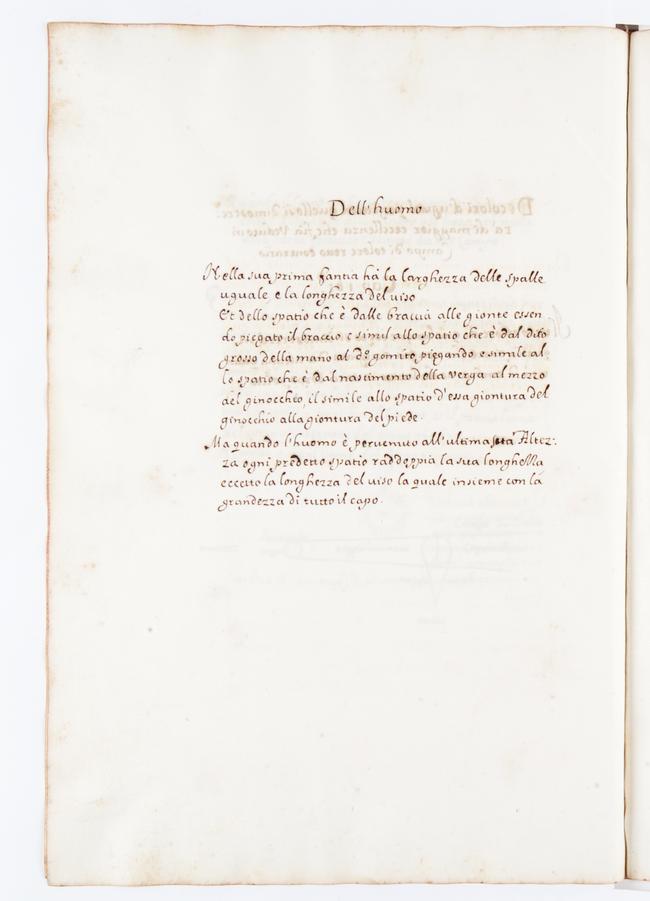 Dell'huomo
Nella sua prima fantia hà la larghezza delle spalle
uguale e la longhezza del viso
Et dello spatio che è dalle braccia alle gionte essen
do piegato il braccio e simil allo spatio che è dal dito
grosso della mano al dº gomito piegando e simile al
lo spatio che è dal nastimento della verga al mezzo
del ginocchio, il simile allo spatio d'essa giontura del
ginocchio alla giontura del piede.
Ma quando l'huomo è pervenuto all'ultima sua Altez:
za ogni predetto spatio raddoppia la sua longhezza
eccetto la longhezza del viso la quale insieme con la
grandezza di tutto il capo.